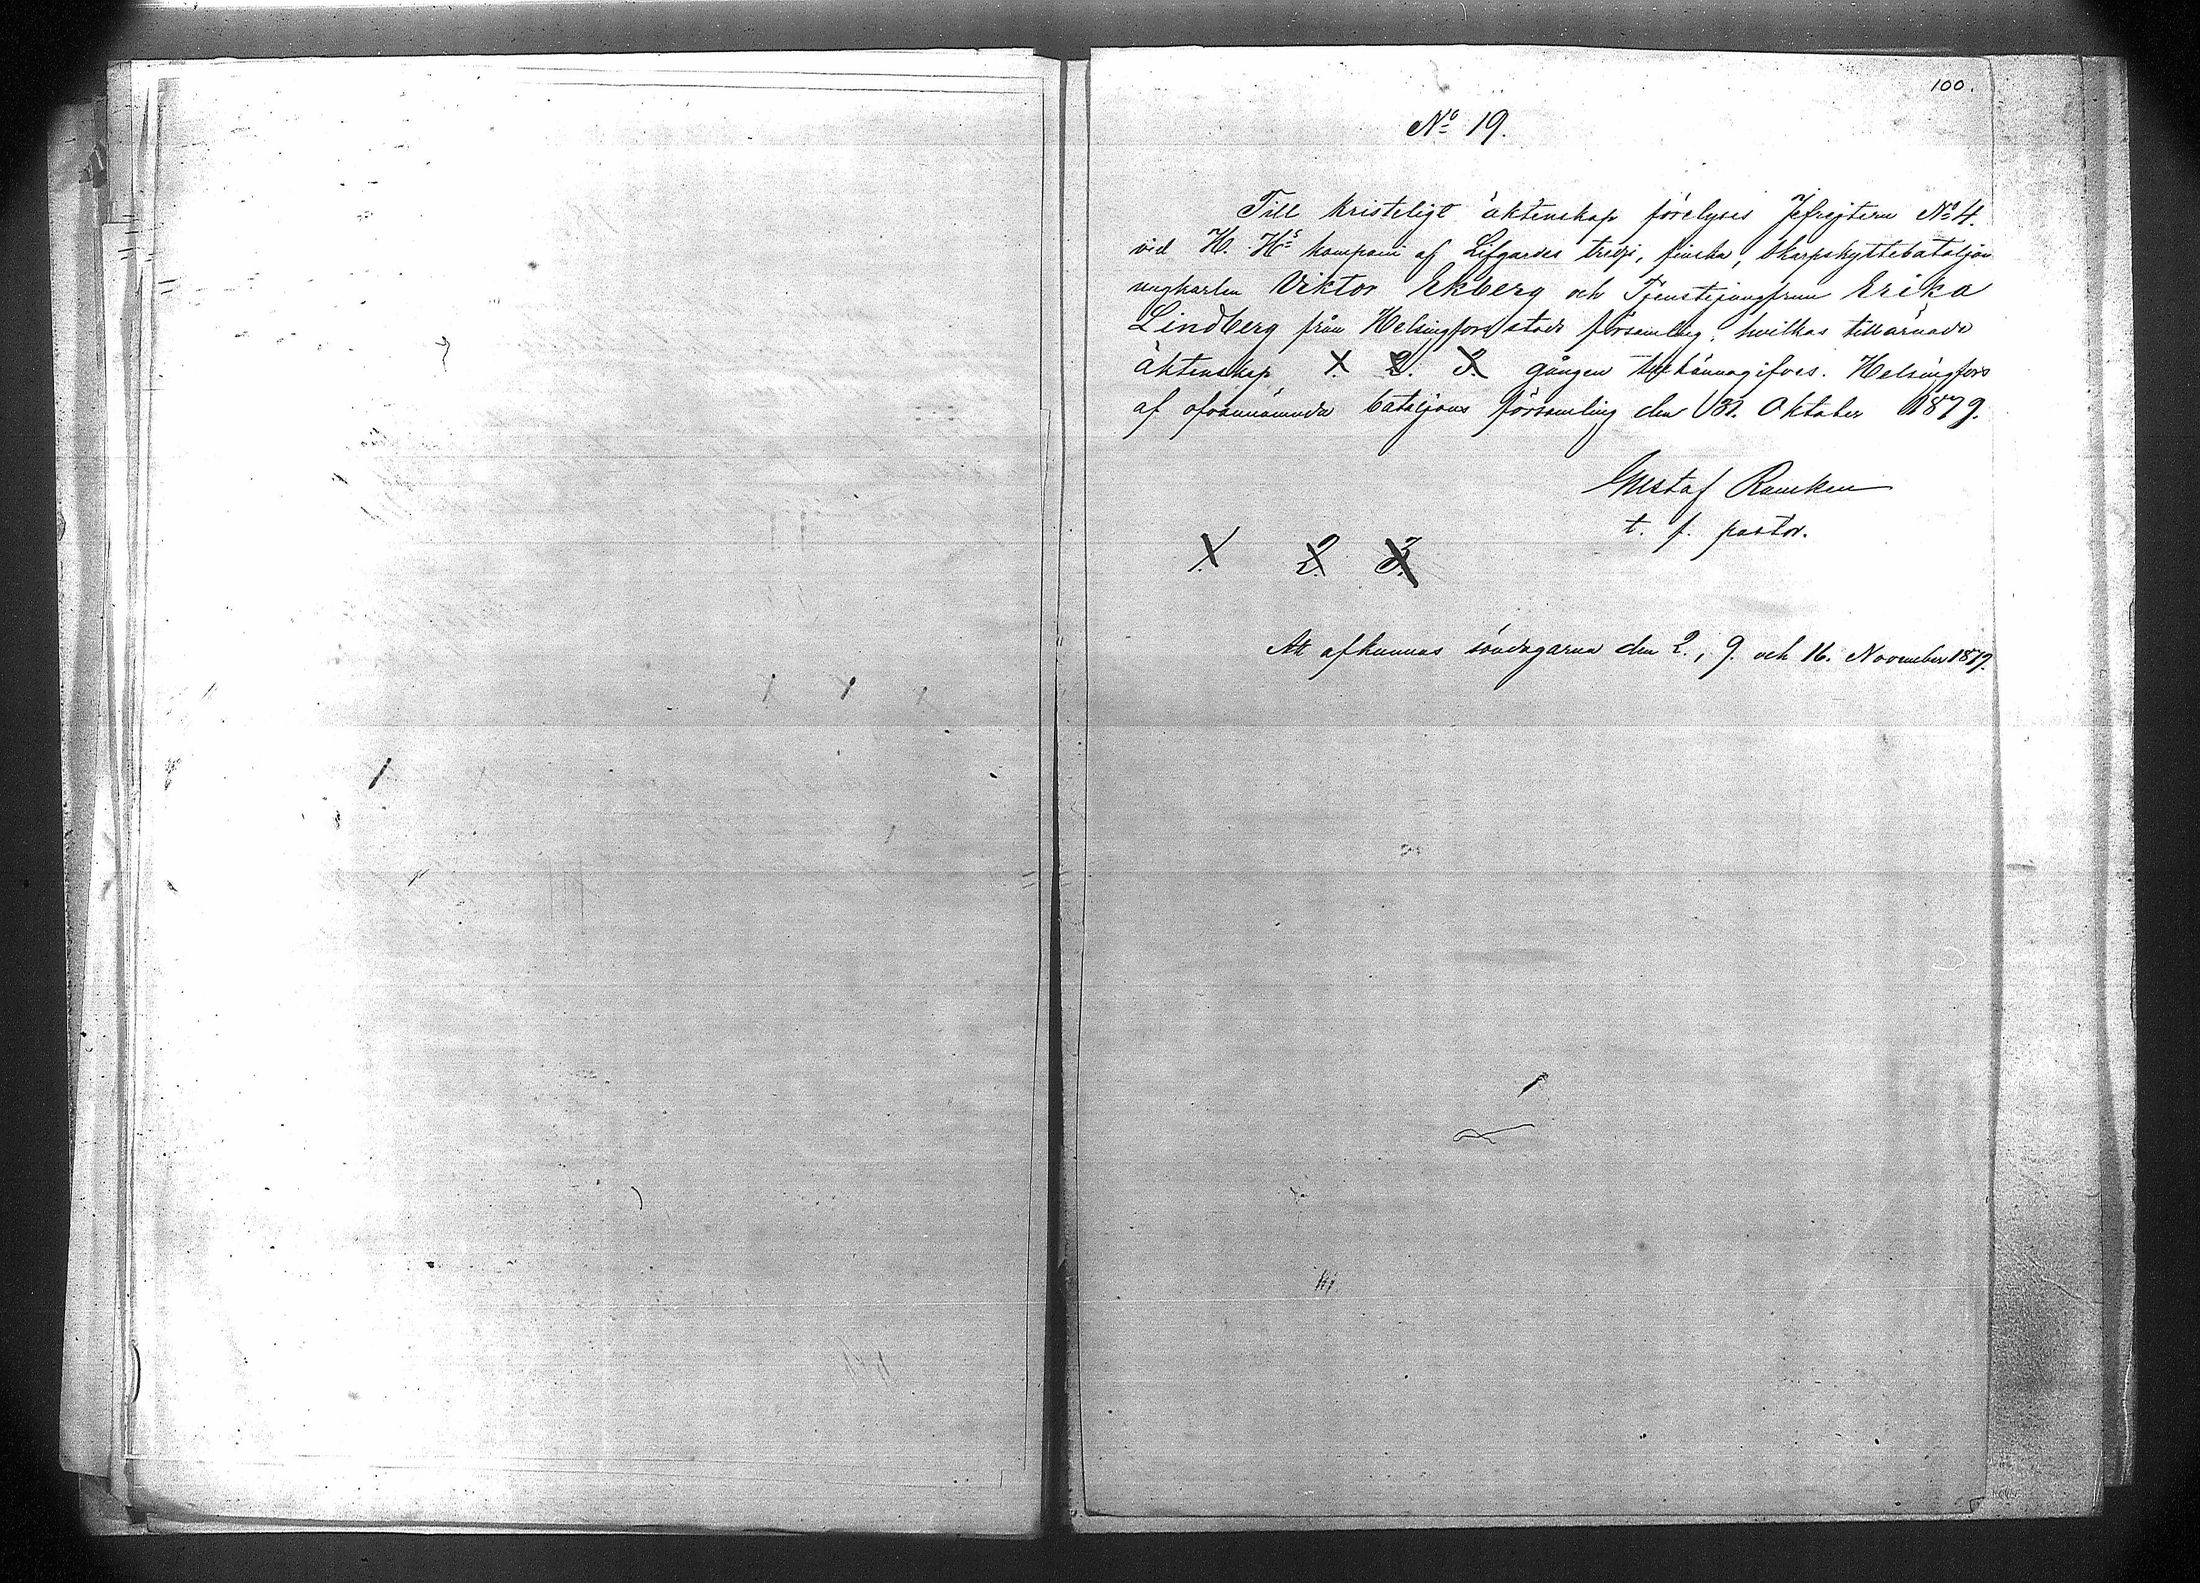 100.
No 19.
Till kristeligt äktenskap förelyses Jefrejtern No 4.
vid H. Hs kompani af Lifgardes tredje, finska, Skarpskyttebataljon
ungkarlen Viktor Ekberg och Tjenstejungfrun Erika
Lindberg från Helsingfors stads församling, hvilkas tillärnade
äktenskap 1. 2. 3. gången tillkännagifves. Helsingfors
af ofvannämnda bataljons församling den 31. Oktober 1879.
Gustaf Rancken
t. f. pastor.
1. 2. 3.
Att afkunnas söndagarna den 2., 9. och 16. November 1879.